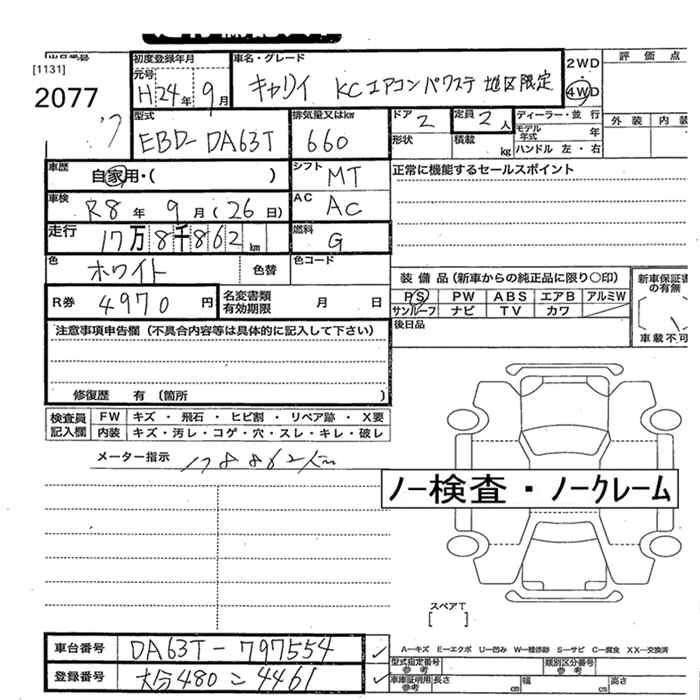 [1131]
2077
初度登録年月
元号
H24年9月
車名・グレード
キャリイ KCエアコンパワステ 地区限定
2WD
4WD
評価点
外装 内装
型式
EBD-DA63T
排気量又はkw
660
ドア
2
形状
定員
2人
積載
kg
ディーラー・並行
モデル年式 年
ハンドル 左・右
車歴
自家用・( )
シフト
MT
正常に機能するセールスポイント
車検
R8年9月(26日)
AC
AC
走行
17万8千862km
燃料
G
色
ホワイト
色替
色コード
R券
4970円
名変書類有効期限
月 日
装備品(新車からの純正品に限り○印)
PS PW ABS エアB アルミW
サンルーフ ナビ TV カワ
後日品
新車保証書の有無
車載不可
注意事項申告欄(不具合内容等は具体的に記入して下さい)
修復歴 有(箇所 )
検査員記入欄
FW キズ・飛石・ヒビ割・リペア跡・X要
内装 キズ・汚レ・コゲ・穴・スレ・キレ・破レ
メーター指示 178862km
ノー検査・ノークレーム
スペアT
[ ]
車台番号
DA63T-797554
登録番号
大分480こ4461
A=キズ E=エクボ U=凹み W=補修跡 S=サビ C=腐食 XX=交換済
型式指定番号
参考
類別区分番号
参考
車庫証明用
参考
長さ cm
幅 cm
高さ cm